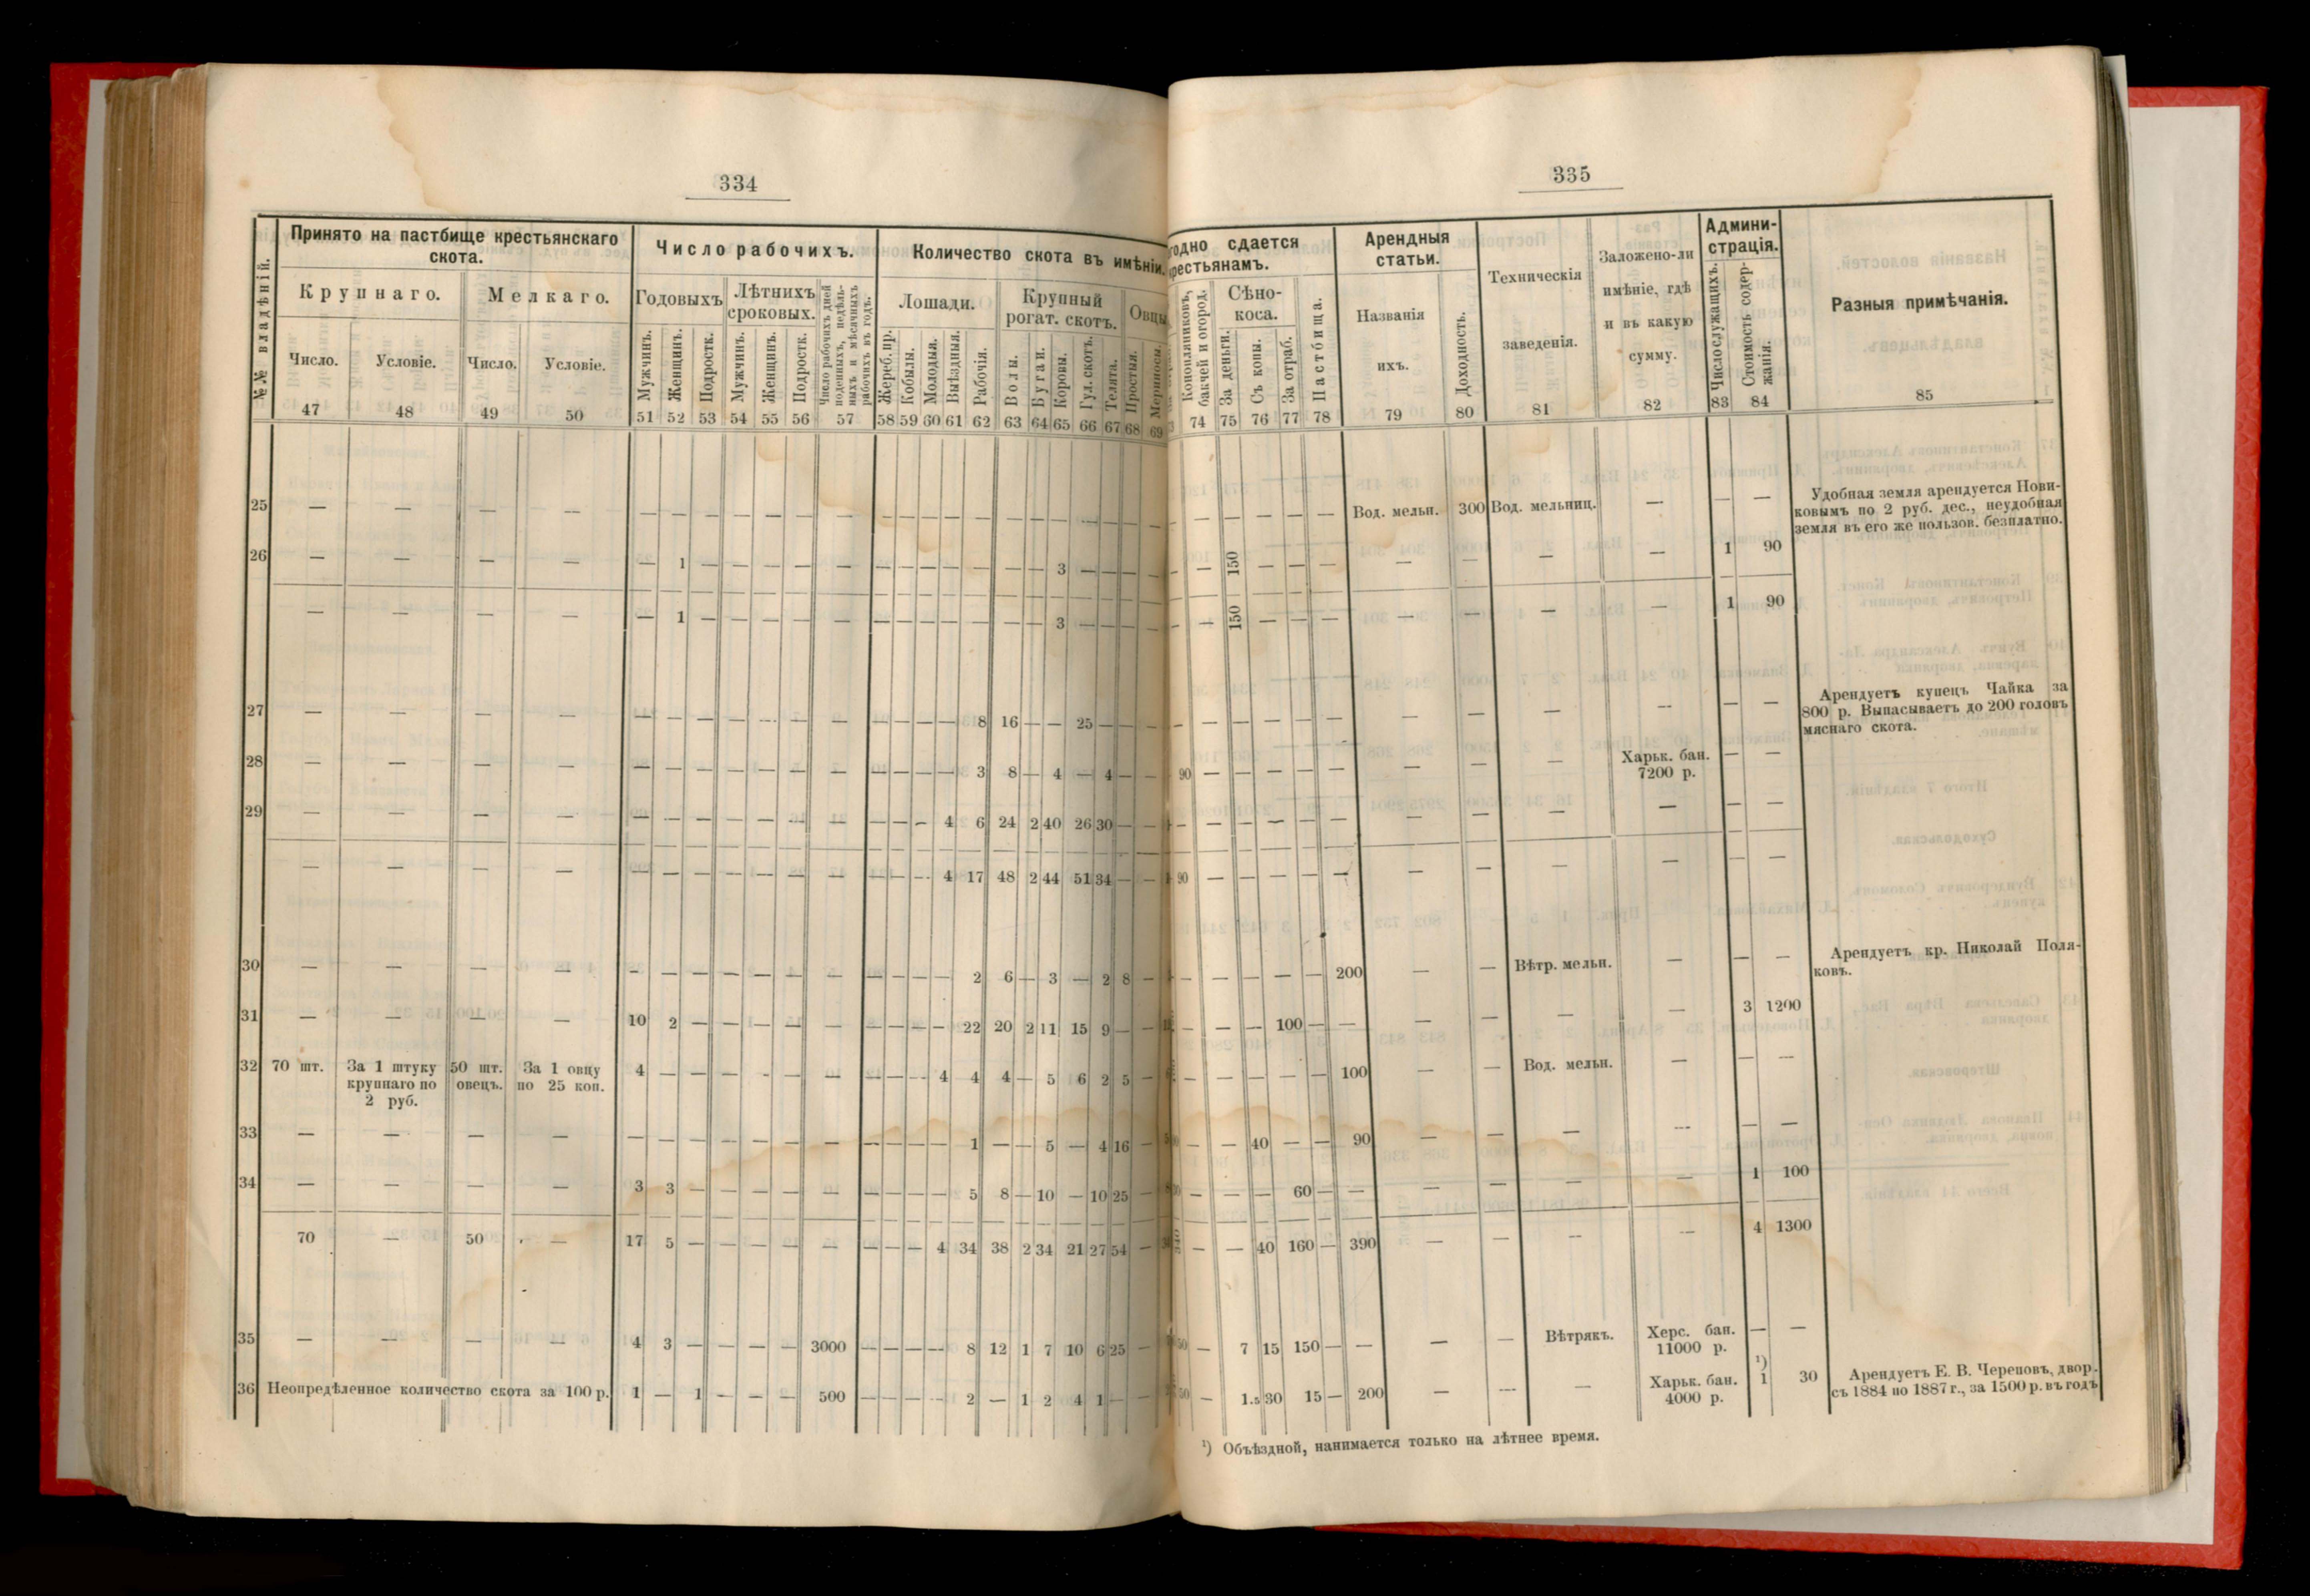 334
№№ владѣній.
Принято на пастбище крестьянскаго
скота.
Число рабочихъ.
Количество скота въ имѣніи.
Крупнаго.
Мелкаго.
Годовыхъ
Лѣтнихъ
сроковыхъ.
Число рабочихъ дней
поденныхъ, недѣль-
ныхъ и мѣсячныхъ
рабочихъ въ годъ.
Лошади.
Крупный
рогат. скотъ.
Овцы
Число.
Условіе.
Число.
Условіе.
Мужчинъ.
Женщинъ.
Подростк.
Мужчинъ.
Женщинъ.
Подростк.
Жереб. пр.
Кобылы.
Молодыя.
Выѣздныя.
Рабочія.
Волы.
Бугаи.
Коровы.
Гул. скотъ.
Телята.
Простыя.
Мериносы.
47 48 49 50 51 52 53 54 55 56 57 58 59 60 61 62 63 64 65 66 67 68 69
25 — — — — — — — — — — — — — — — — — — — — — — —
26 — — — — — 1 — — — — — — — — — — — — 3 — — — —
— — — — — 1 — — — — — — — — — — — — 3 — — — —
27 — — — — — — — — — — — — — — — 8 16 — — 25 — — —
28 — — — — — — — — — — — — — — — 3 8 — 4 — 4 — —
29 — — — — — — — — — — — — — — 4 6 24 2 40 26 30 — —
— — — — — — — — — — — — — — 4 17 48 2 44 51 34 — —
30 — — — — — — — — — — — — — — — 2 6 — 3 — 2 8 —
31 — — — — 10 2 — — — — — — — — — 22 20 2 11 15 9 — —
32 70 шт. За 1 штуку 50 шт. За 1 овцу 4 — — — — — — — — — 4 4 4 — 5 6 2 5 —
крупнаго по овецъ. по 25 коп.
2 руб.
33 — — — — — — — — — — — — — — — 1 — — 5 — 4 16 —
34 — — — — 3 3 — — — — — — — — — 5 8 — 10 — 10 25 —
70 — 50 — 17 5 — — — — — — — — 4 34 38 2 34 21 27 54 —
35 — — — — 4 3 — — — — 3000 — — — — 8 12 1 7 10 6 25 —
36 Неопредѣленное количество скота за 100 р. 1 — 1 — — — 500 — — — — 2 — 1 2 4 1 — —
335
годно сдается
крестьянамъ.
Арендныя
статьи.
Техническія
заведенія.
Заложено-ли
имѣніе, гдѣ
и въ какую
сумму.
Админи-
страція.
Разныя примѣчанія.
Конопляниковъ,
бакчей и огород.
Сѣно-
коса.
Пастбища.
Названія
ихъ.
Доходность.
Число служащихъ.
Стоимость содер-
жанія.
За деньги.
Съ копы.
За отраб.
74 75 76 77 78 79 80 81 82 83 84 85
— — — — — Вод. мельн. 300 Вод. мельниц. — — — Удобная земля арендуется Нови-
ковымъ по 2 руб. дес., неудобная
земля въ его же пользов. безплатно.
— 150 — — — — — — — 1 90
— 150 — — — — — — — 1 90
— — — — — — — — — — — — Арендуетъ купецъ Чайка за
800 р. Выпасываетъ до 200 головъ
мяснаго скота.
90 — — — — — — — — Харьк. бан. — —
7200 р.
— — — — — — — — — — — —
90 — — — — — — — — — — —
— — — — — 200 — — Вѣтр. мельн. — — — Арендуетъ кр. Николай Поля-
ковъ.
— — — 100 — — — — — — 3 1200
— — — — — 100 — — Вод. мельн. — — —
— — 40 — — 90 — — — — — —
— — — 60 — — — — — — 1 100
— — 40 160 — 390 — — — — 4 1300
— 7 15 150 — — — — Вѣтрякъ. Херс. бан. — —
11000 р.
— 1.5 30 15 — 200 — — — Харьк. бан. ¹) 1 30 Арендуетъ Е. В. Череповъ, двор.
4000 р. съ 1884 по 1887 г., за 1500 р. въ годъ
¹) Объѣздной, нанимается только на лѣтнее время.